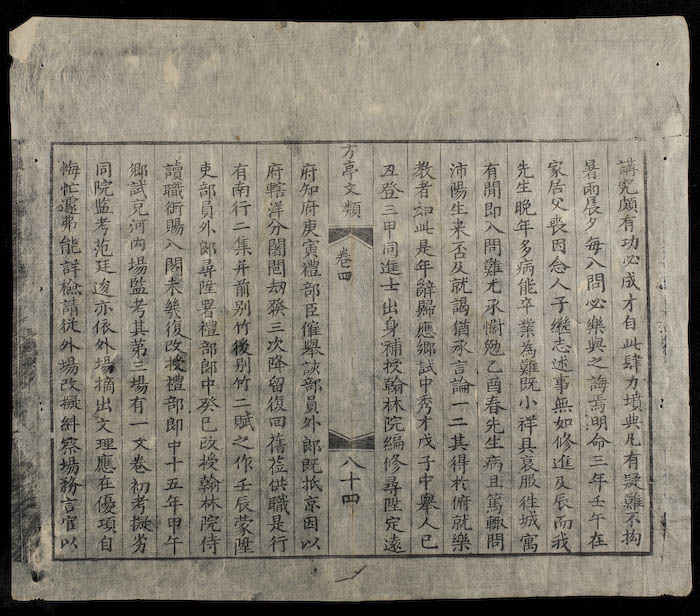 講究頗有功必成才自此肆力墳典凡有疑難不拘
暑雨晨夕每入問必樂與之誨焉明命三年壬午在
家居父喪因念人子繼志述事無如修進及辰而我
先生晚年多病能卒業為難既小祥具衰服徃城寓
有閒即入問難尤承慟勉乙酉春先生病且篤輙問
沛陽生来否及就謁猶承言論一二其得於俯就樂
教者如此是年辭歸應鄉試中秀才戊子中舉人已
丑登三甲同進士出身補授翰林院編修尋陞定遠
方亭文類 卷四 八十四
府知府庚寅禮部臣舉該部員外郎既抵京因以
府轄洋分闊閭劫發三次降留復回舊莅供職是行
有南行二集并前别竹後别竹二賦之作壬辰蒙陞
吏部員外郎尋陞署禮部郎中癸已改授翰林院侍
讀職銜賜八閣未幾復改授禮部郎中十五年甲午
鄉試充河内場監考其第三場有一文卷初考擬劣
同院監考范廷逡亦依外場摘出文理應在優項自
悔忙遽弗能詳檢請徒外場改擬糾察場務言官以